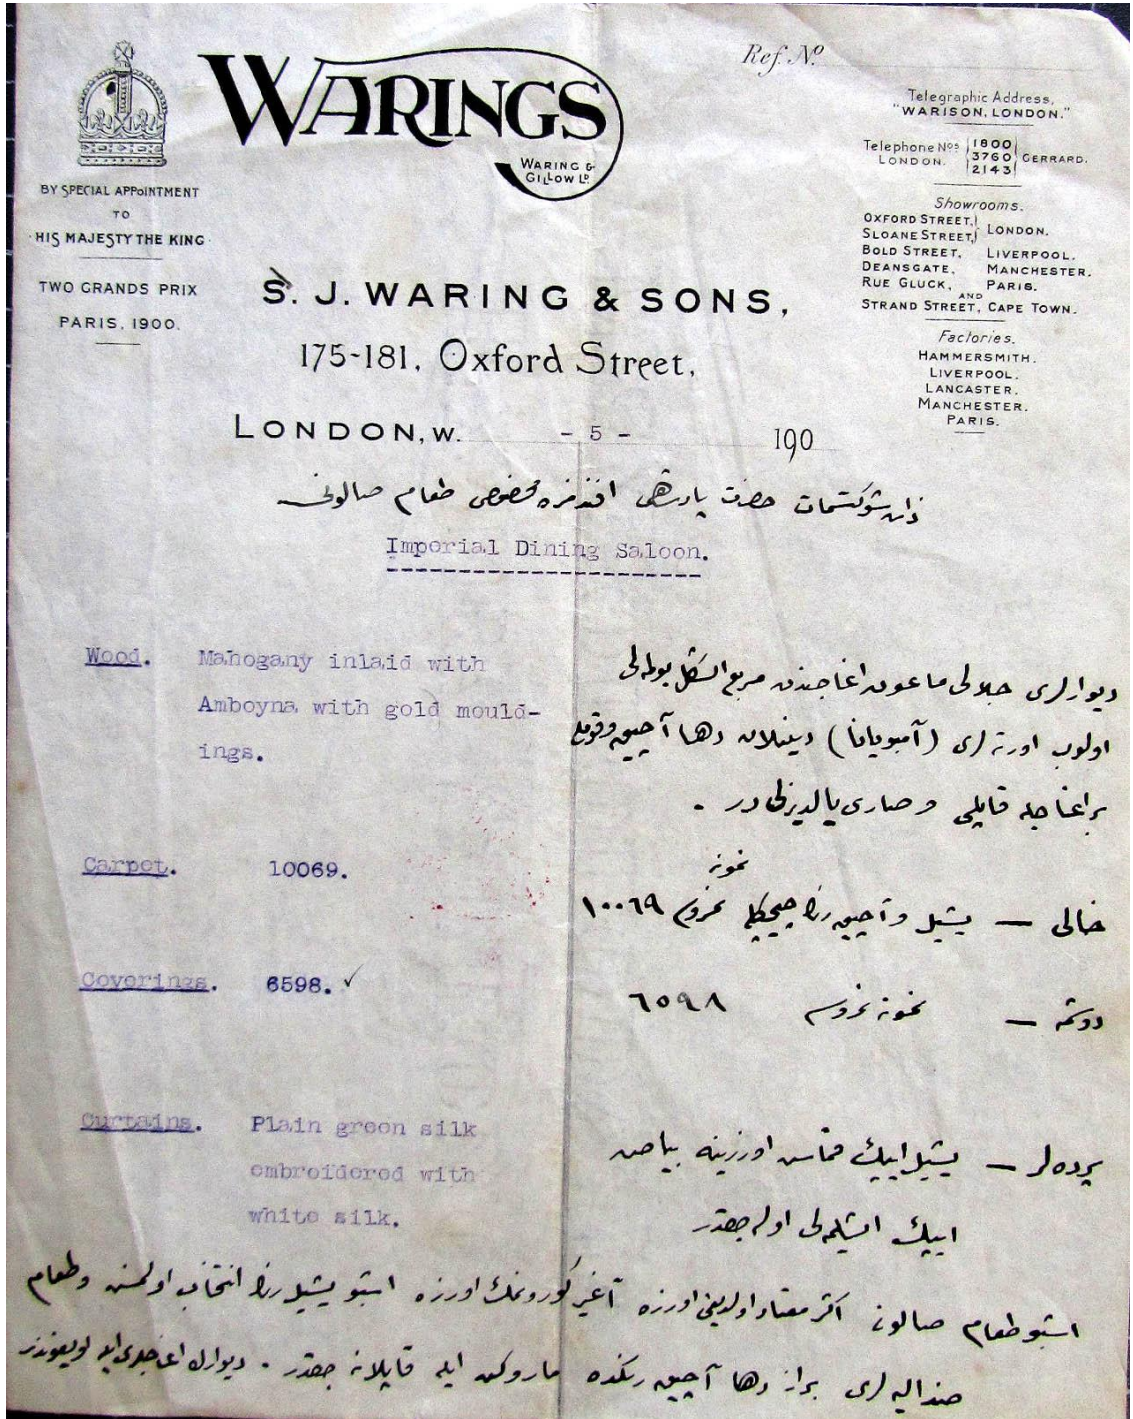 Ref. No.
WARINGS
WARING & GILLOW LD.
BY SPECIAL APPOINTMENT
TO
HIS MAJESTY THE KING
TWO GRANDS PRIX
PARIS, 1900.
Telegraphic Address,
"WARISON, LONDON."
Telephone Nos LONDON. 1800 3760 2143 GERRARD.
Showrooms.
OXFORD STREET, SLOANE STREET, LONDON.
BOLD STREET, LIVERPOOL.
DEANSGATE, MANCHESTER.
RUE GLUCK, PARIS.
AND
STRAND STREET, CAPE TOWN.
Factories.
HAMMERSMITH.
LIVERPOOL.
LANCASTER.
MANCHESTER.
PARIS.
S. J. WARING & SONS,
175-181, Oxford Street,
LONDON, W. - 5 - 190
ذات شوكتسمات حضرت پادشاهی افندمزه مخصوص طعام صالونی
Imperial Dining Saloon.
Wood. Mahogany inlaid with
Amboyna with gold mould-
ings.
دیوارلری جلالی ماعون اغاجندن مربع الشکل
اولوب اورتەلری (آمبویانا) دینیلان دها آچیق
براغاجله قاپلی و صاری یالدیزلیدر .
Carpet. 10069.
نمونه
خالی — یشیل و آچیق رنك چیچكلی نمروسی ١٠٠٦٩
Coverings. 6598. ✓
دوشمه — نمونه نمروسی ٦٥٩٨
Curtains. Plain green silk
embroidered with
white silk.
پرده‌لر — یشیل ایپك قماش اوزرینه بیاض
ایپك ایشلمه‌لی اوله‌جقدر
اشبو طعام صالونی اكثر معتاد اولدیغی اوزره آغیر كورونمك اوزره اشبو یشیل رنك انتخاب اولنمش و طعام
صندالیه‌لری براز دها آچیق رنكده ماروكن ایله قاپلانه‌جقدر . دیوارك اغاجلری ایله